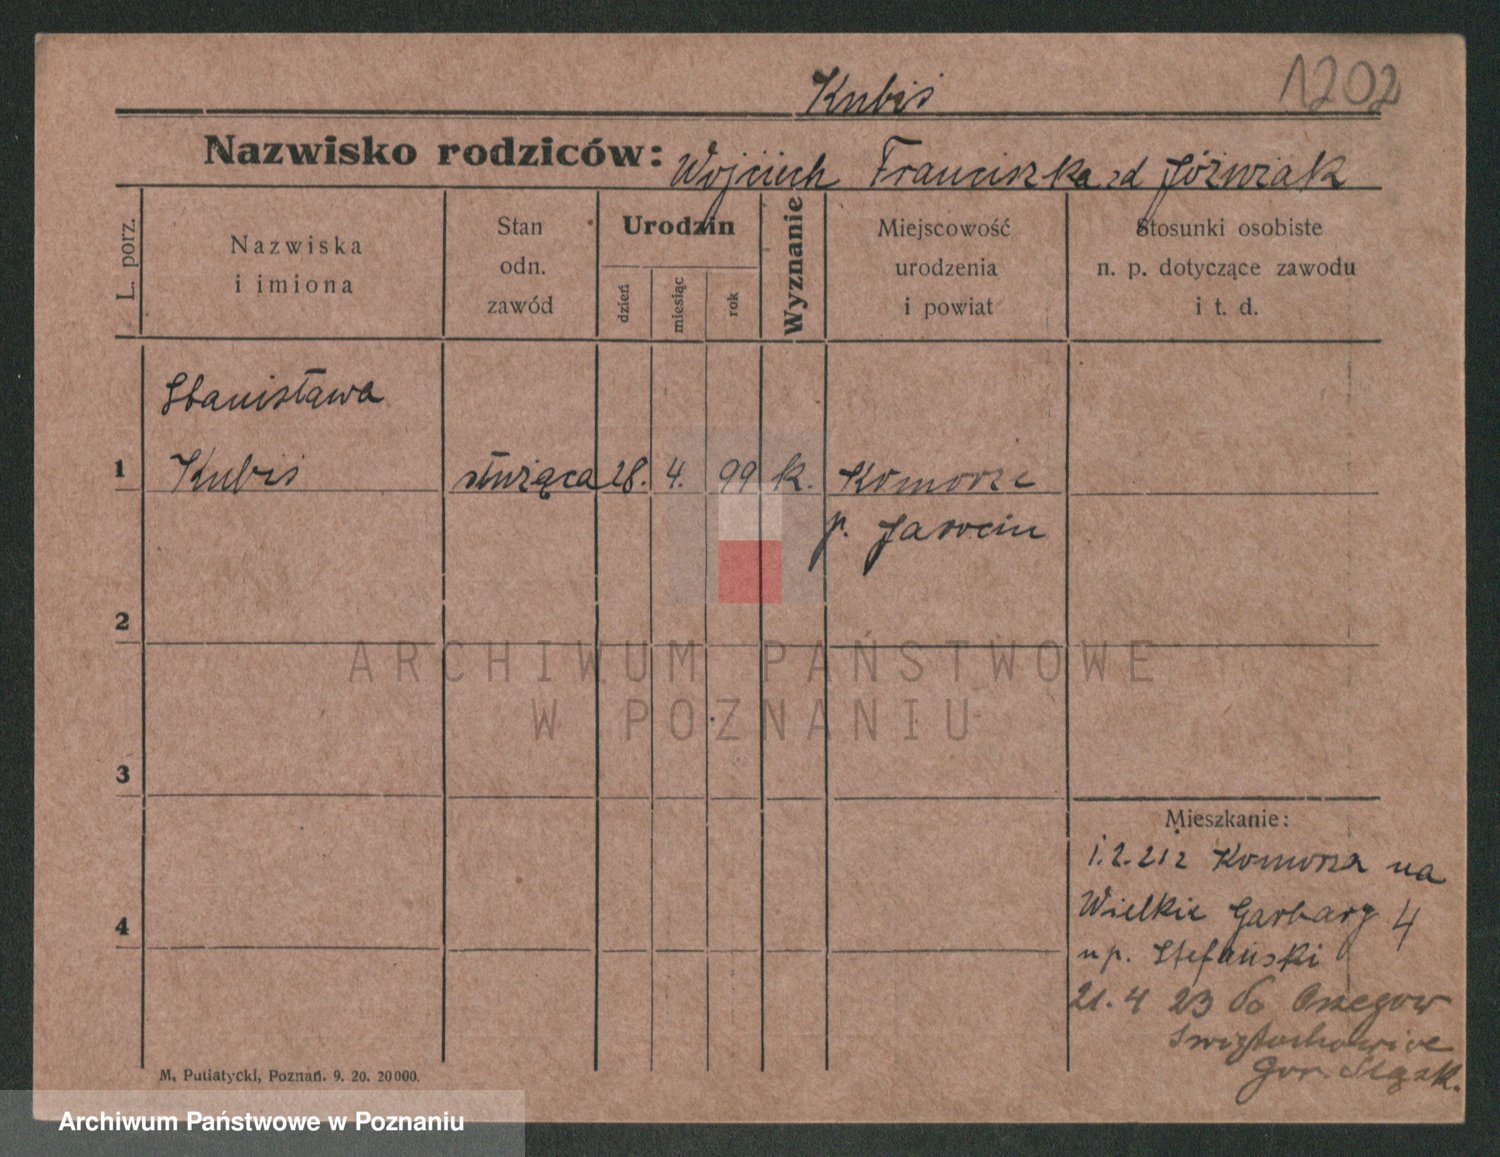 1202
Kubiś
Nazwisko rodziców: Wojciech Franciszka zd Jóźwiak
L. porz.
Nazwiska
i imiona
Stan
odn.
zawód
Urodzin
dzień
miesiąc
rok
Wyznanie
Miejscowość
urodzenia
i powiat
Stosunki osobiste
n. p. dotyczące zawodu
i t. d.
Stanisława
1 Kubiś służąca 28. 4. 99 k. Komorze
p. Jarocin
2
ARCHIWUM PAŃSTWOWE
W POZNANIU
3
Mieszkanie:
1.2.21 z Komorza na
4 Wielkie Garbary 4
u p. Stefański
21.4 23 do
Świętochowice
Gór. Śląsk.
M. Putiatycki, Poznań. 9. 20. 20000.
Archiwum Państwowe w Poznaniu